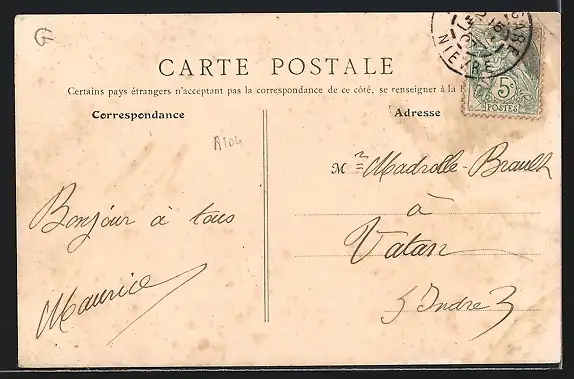 G
NIEVRE
5c
POSTES
CARTE POSTALE
Certains pays étrangers n'acceptant pas la correspondance de ce côté, se renseigner à la
Correspondance
Adresse
A104
Mr Madrolle-Brault
à
Bonjour à tous
Vatan
Maurice
(Indre)